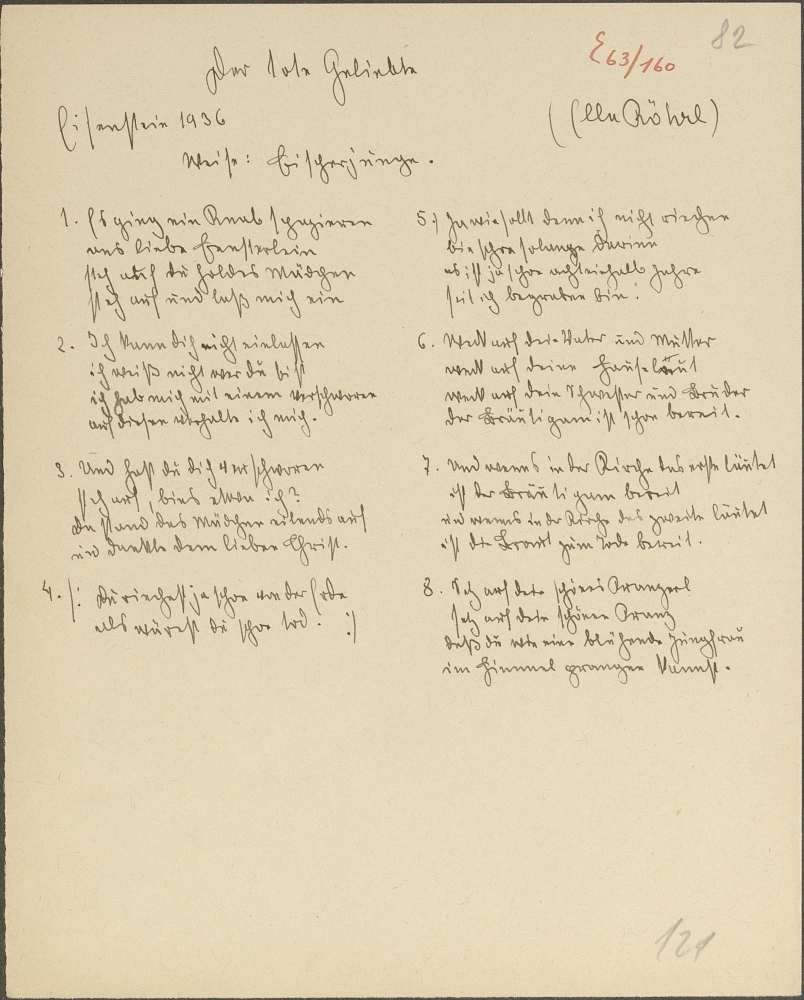 82
E 63/160
Der tote Geliebte
Eisenstein 1936
(Ella Röhrl)
Weise: Fischerjunge.
1. Es ging ein Knab spazieren
ans liebe Fensterlein
steh auf du holdes Mädchen
steh auf und laß mich ein
2. Ich kann dich nicht einlassen
ich weiß nicht wer du bist
ich hab mich mit einem verschworen
auf diesen verhalte ich mich.
3. Und hast du dich verschworen
steh auf, bins etwa ich?
Da stand das Mädchen eilends auf
und dankte dem lieben Christ.
4. /: Du riechest ja schon von der Erde
als wärest du schon tod. :/
5.) Ja wie sollt denn ich nicht riechen
bin schon solange darinn
es ist ja schon achteinhalb Jahre
seit ich begraben bin.
6. Weck auf dein Vater und Mutter
weck auf deine Hausleut
weck auf dein Schwester und Bruder
der Bräutigam ist schon bereit.
7. Und wenns in der Kirche das erste läutet
ist der Bräutigam bereit
und wenns in der Kirche das zweite läutet
ist die Braut zum Tode bereit.
8. Setz auf dein schönes Kranzerl
setz auf dein schönen Kranz
daß du wie eine blühende Jungfrau
im Himmel prangen kannst.
121